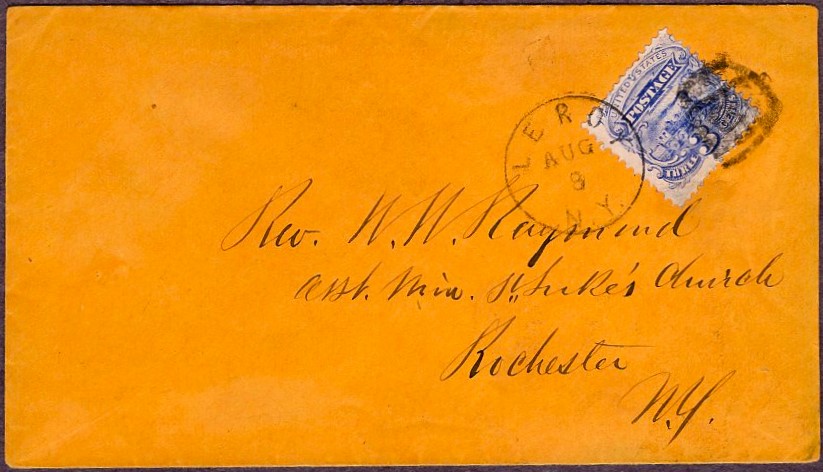 UNITED STATES
POSTAGE
3
THREE
LEROY
AUG
8
N.Y.
Rev. W. W. Raymond
Asst. Min. St. Luke's Church
Rochester
N.Y.